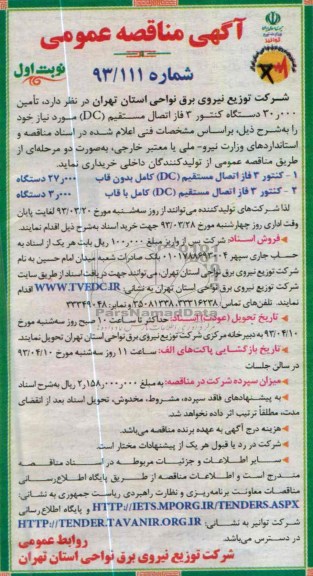 آگهی مناقصه عمومی
نوبت اول
شماره ۹۳/۱۱۱
شرکت توزیع نیروی برق نواحی استان تهران در نظر دارد، تأمین
۳۰٫۰۰۰ دستگاه کنتور ۳ فاز اتصال مستقیم (DC) مورد نیاز خود
را به‌شرح ذیل، براساس مشخصات فنی اعلام شده در اسناد مناقصه و
استانداردهای وزارت نیرو- ملی یا معتبر خارجی، به‌صورت دو مرحله‌ای از
طریق مناقصه عمومی از تولیدکنندگان داخلی خریداری نماید.
۱ - کنتور ۳ فاز اتصال مستقیم (DC) کامل بدون قاب ۲۷٫۰۰۰ دستگاه
۲ - کنتور ۳ فاز اتصال مستقیم (DC) کامل با قاب ۳٫۰۰۰ دستگاه
لذا شرکت‌های تولیدکننده می‌توانند از روز سه‌شنبه مورخ ۹۳/۰۳/۲۰ لغایت پایان
وقت اداری روز چهارشنبه مورخ ۹۳/۰۳/۲۸ جهت خرید اسناد به‌شرح ذیل اقدام نمایند.
فروش اسناد: شرکت پس از واریز مبلغ ۱۰۰٫۰۰۰ ریال بابت هر یک از اسناد به
حساب جاری سپهر بانک صادرات شعبه میدان امام حسین به نام
شرکت توزیع نیروی برق نواحی استان تهران، می‌توانند جهت دریافت اسناد از طریق سایت
شرکت توزیع نیروی برق نواحی استان تهران به نشانی: WWW.TVEDC.IR اقدام
نمایند. تلفن‌های تماس: ۳۳۳۱۶۲۳۸، ۳۵۰۸۱۳۳۸ نمابر: ۳۳۳۴۹۰۴۸
ParsNamadData
تاریخ تحویل (عودت) اسناد: حداکثر تا ساعت ۱۰ صبح روز سه‌شنبه مورخ
۹۳/۰۴/۱۰ به دبیرخانه مرکزی شرکت توزیع نیروی برق نواحی استان تهران تحویل نمایند.
تاریخ بازگشایی پاکت‌های الف: ساعت ۱۱ روز سه‌شنبه مورخ ۹۳/۰۴/۱۰
در سالن جلسات
میزان سپرده شرکت در مناقصه: به مبلغ ۲٫۱۵۸٫۰۰۰٫۰۰۰ ریال به‌شرح اسناد
به پیشنهادهای فاقد سپرده، مشروط، مخدوش، تحویل اسناد بعد از انقضای
مدت، مطلقاً ترتیب اثر داده نخواهد شد.
هزینه درج آگهی به عهده برنده مناقصه می‌باشد.
شرکت در رد یا قبول هر یک از پیشنهادات مختار است.
سایر اطلاعات و جزئیات مربوطه در اسناد مناقصه
مندرج است و اطلاعات مناقصه از طریق پایگاه اطلاع‌رسانی
مناقصات معاونت برنامه‌ریزی و نظارت راهبردی ریاست جمهوری به نشانی:
HTTP://IETS.MPORG.IR/TENDERS.ASPX و پایگاه اطلاع‌رسانی
شرکت توانیر به نشانی: HTTP://TENDER.TAVANIR.ORG.IR
در دسترس می‌باشد.
روابط عمومی
شرکت توزیع نیروی برق نواحی استان تهران